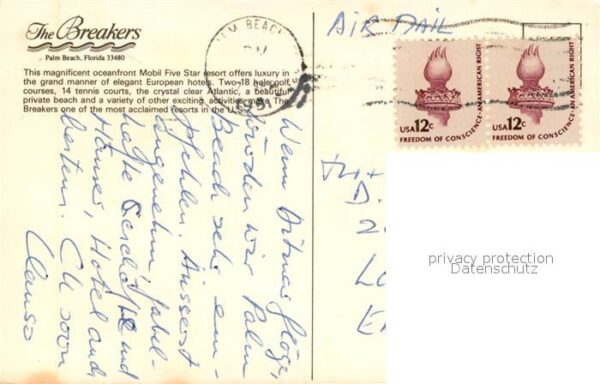 The Breakers
Palm Beach, Florida 33480
This magnificent oceanfront Mobil Five Star resort offers luxury in
the grand manner of elegant European hotels. Two-18 hole golf
courses, 14 tennis courts, the crystal clear Atlantic, a beautiful
private beach and a variety of other exciting activities make The
Breakers one of the most acclaimed resorts in the U.S.
PALM BEACH
AIR MAIL
USA 12c
FREEDOM OF CONSCIENCE-AN AMERICAN RIGHT
USA 12c
FREEDOM OF CONSCIENCE-AN AMERICAN RIGHT
Wenn
würden wir Palm
Beach sehr em-
pfehlen. Äusserst
angenehm, fabel-
hafte Geschäfte und
Häuser, Hotel and
Western. CU soon
D.
2
Lo
E
privacy protection
Datenschutz